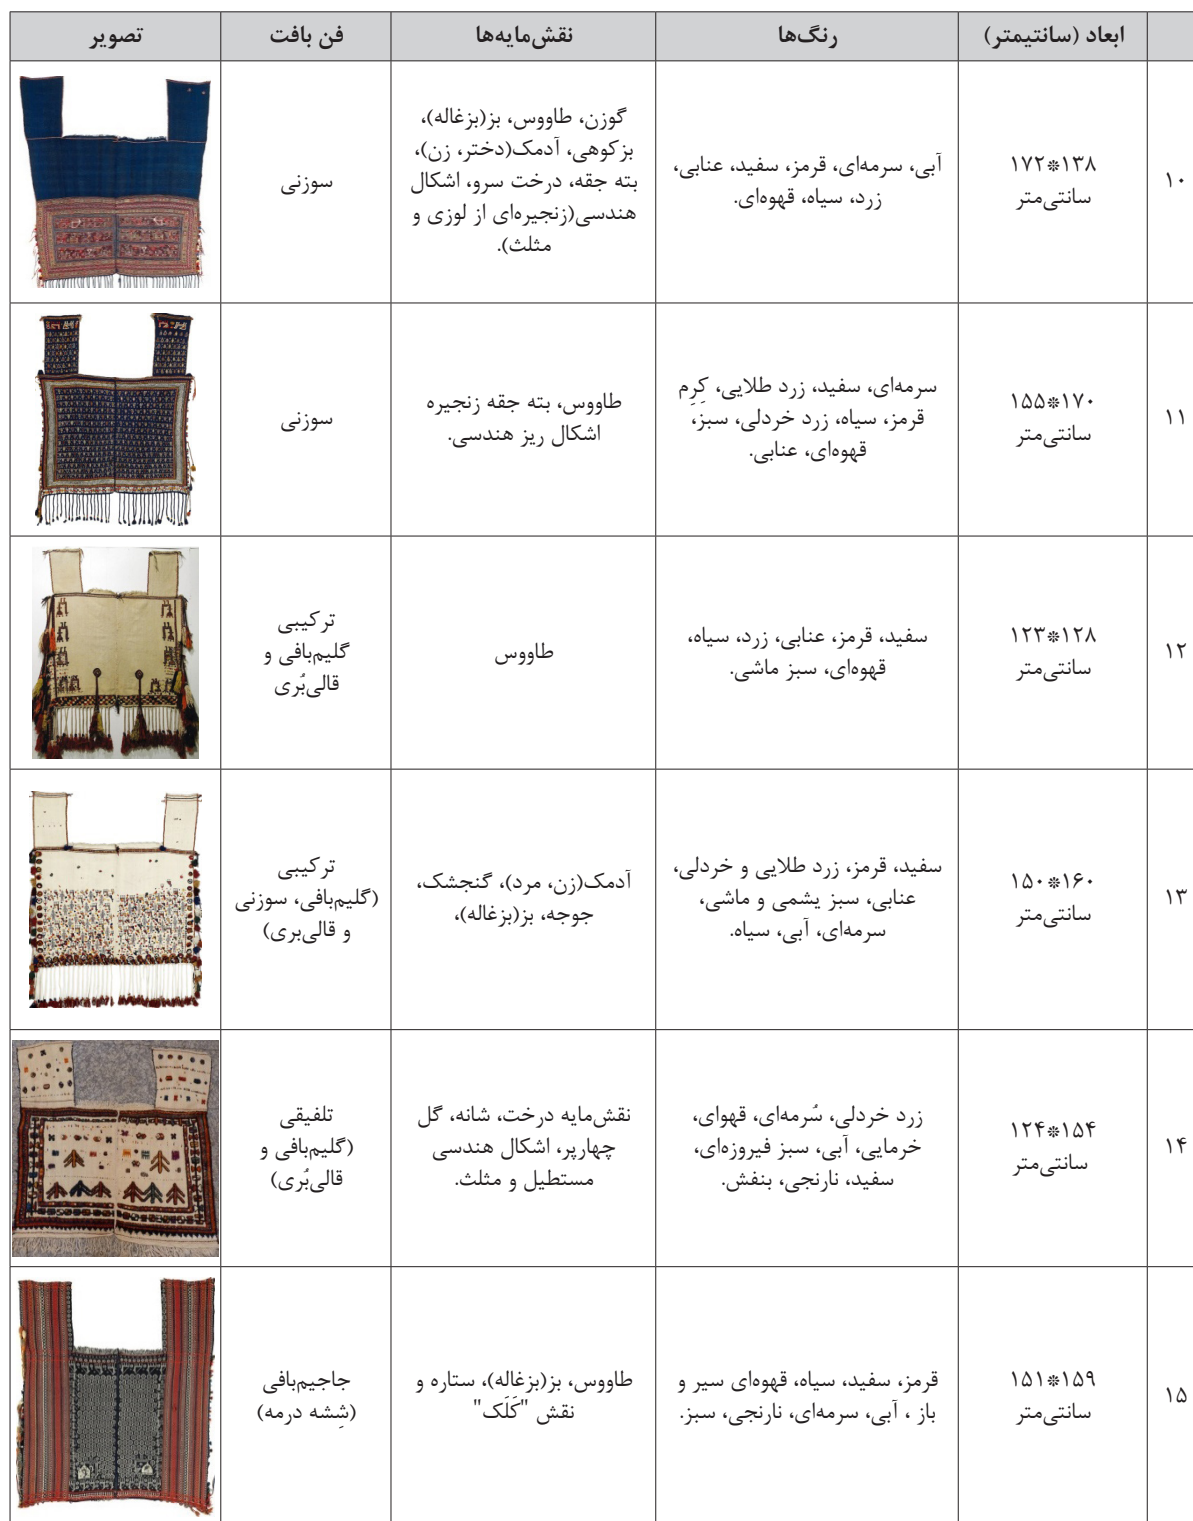 ابعاد (سانتیمتر)
رنگ‌ها
نقش‌مایه‌ها
فن بافت
تصویر
۱۰
۱۷۲*۱۳۸
سانتی‌متر
آبی، سرمه‌ای، قرمز، سفید، عنابی،
زرد، سیاه، قهوه‌ای.
گوزن، طاووس، بز(بزغاله)،
بزکوهی، آدمک(دختر، زن)،
بته جقه، درخت سرو، اشکال
هندسی(زنجیره‌ای از لوزی و
مثلث).
سوزنی
۱۱
۱۵۵*۱۷۰
سانتی‌متر
سرمه‌ای، سفید، زرد طلایی، کِرِم
قرمز، سیاه، زرد خردلی، سبز،
قهوه‌ای، عنابی.
طاووس، بته جقه زنجیره
اشکال ریز هندسی.
سوزنی
۱۲
۱۲۳*۱۲۸
سانتی‌متر
سفید، قرمز، عنابی، زرد، سیاه،
قهوه‌ای، سبز ماشی.
طاووس
ترکیبی
گلیم‌بافی و
قالی‌بُری
۱۳
۱۵۰*۱۶۰
سانتی‌متر
سفید، قرمز، زرد طلایی و خردلی،
عنابی، سبز یشمی و ماشی،
سرمه‌ای، آبی، سیاه.
آدمک(زن، مرد)، گنجشک،
جوجه، بز(بزغاله)،
ترکیبی
(گلیم‌بافی، سوزنی
و قالی‌بری)
۱۴
۱۲۴*۱۵۴
سانتی‌متر
زرد خردلی، سُرمه‌ای، قهوای،
خرمایی، آبی، سبز فیروزه‌ای،
سفید، نارنجی، بنفش.
نقش‌مایه درخت، شانه، گل
چهارپر، اشکال هندسی
مستطیل و مثلث.
تلفیقی
(گلیم‌بافی و
قالی‌بُری)
۱۵
۱۵۱*۱۵۹
سانتی‌متر
قرمز، سفید، سیاه، قهوه‌ای سیر و
باز ، آبی، سرمه‌ای، نارنجی، سبز.
طاووس، بز(بزغاله)، ستاره و
نقش "کَلَک"
جاجیم‌بافی
(شِشه درمه)